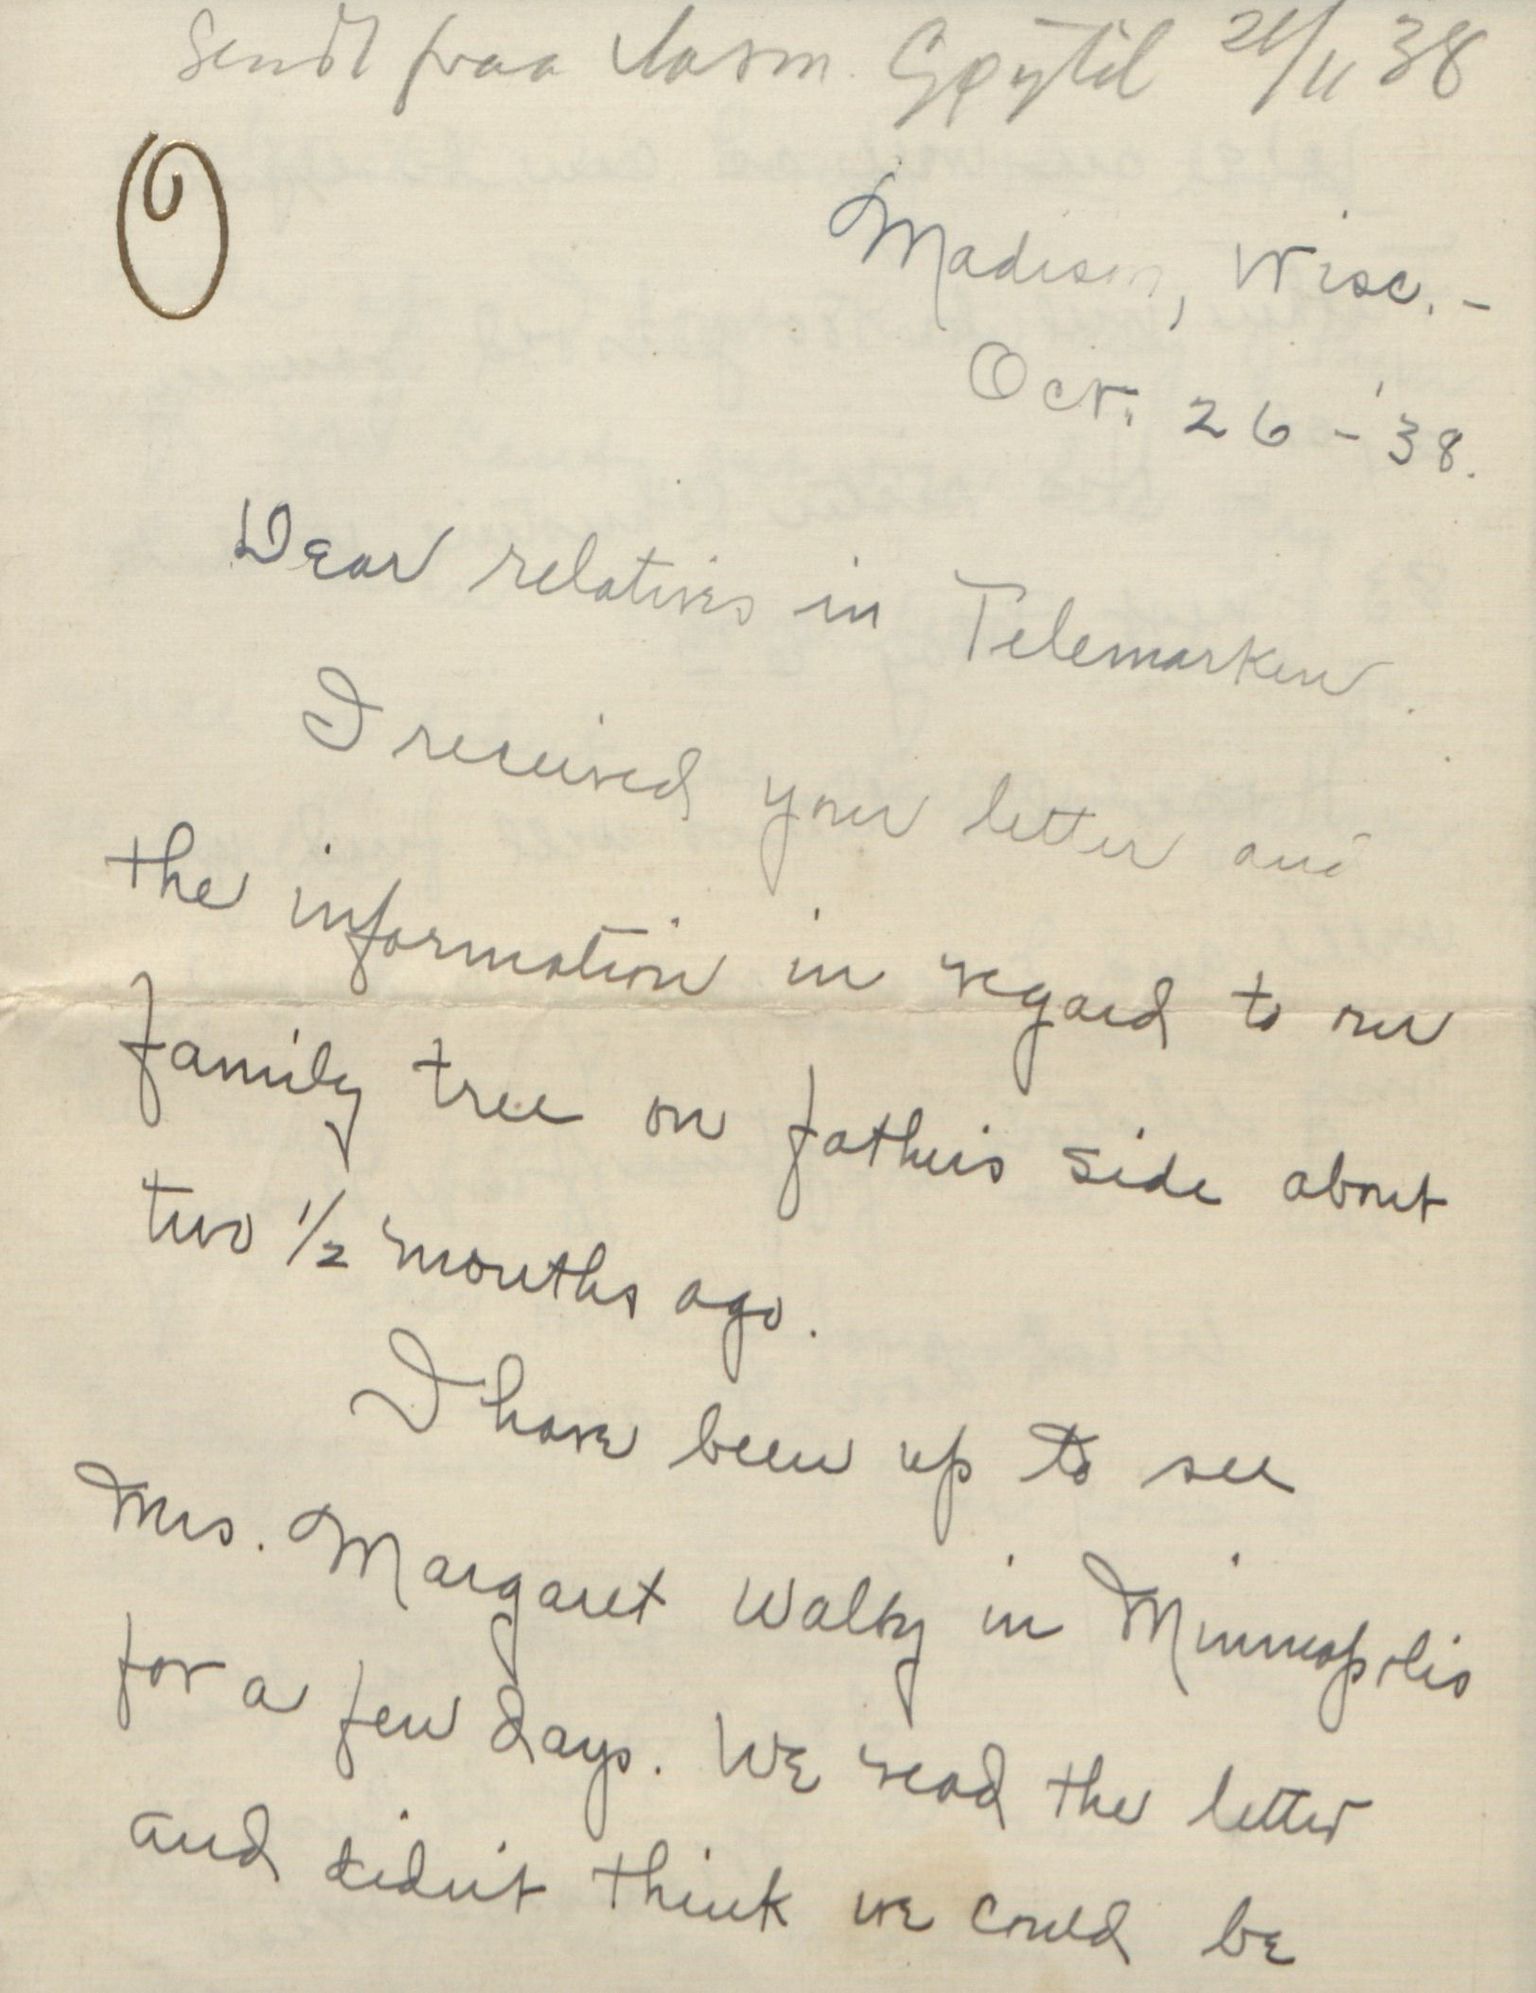 Sendt fraa Aasm. Gøytil 21/11 38
Madison, Wisc. -
Oct. 26 - '38.
Dear relatives in Telemarken.
I received your letter and
the information in regard to our
family tree on father's side about
two 1/2 months ago.
I have been up to see
Mrs. Margaret Walby in Minneapolis
for a few days. We read the letter
and didn't think we could be